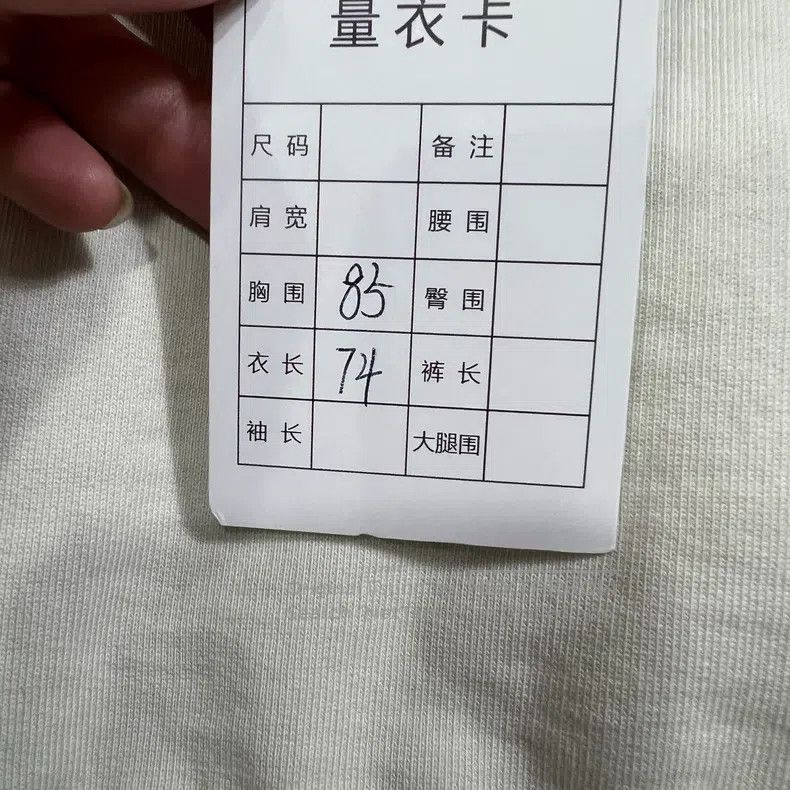 量衣卡
尺码 备注
肩宽 腰围
胸围 85 臀围
衣长 74 裤长
袖长 大腿围